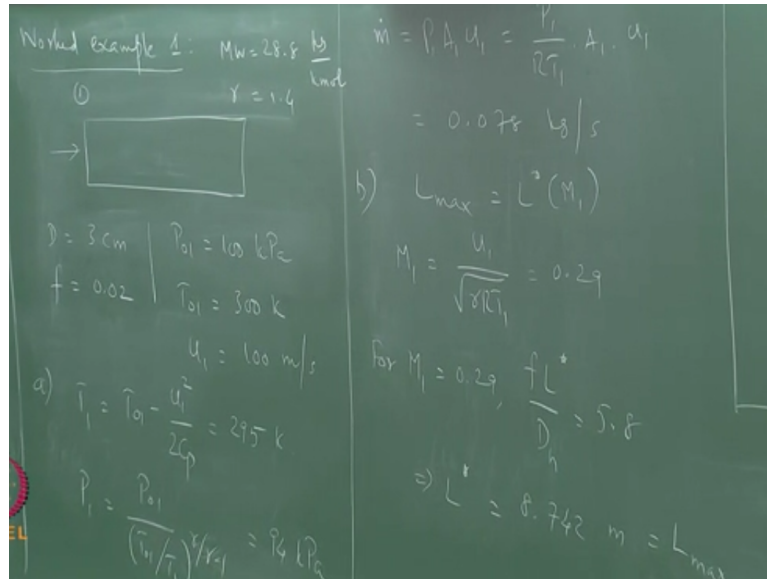 Worked example 1: MW = 28.8 kg/kmol
① γ = 1.4
D = 3 cm
f = 0.02
P01 = 100 kPa
T01 = 300 K
u1 = 100 m/s
a) T1 = T01 - u1²/2Cp = 295 K
P1 = P01/(T01/T1)^γ/γ-1 = 94 kPa
EL
ṁ = P1 A1 u1 = P1/RT1 . A1 . u1
= 0.078 kg/s
b) Lmax = L*(M1)
M1 = u1/√γRT1 = 0.29
For M1 = 0.29, fL*/Dh = 5.8
⇒ L* = 8.742 m = Lmax